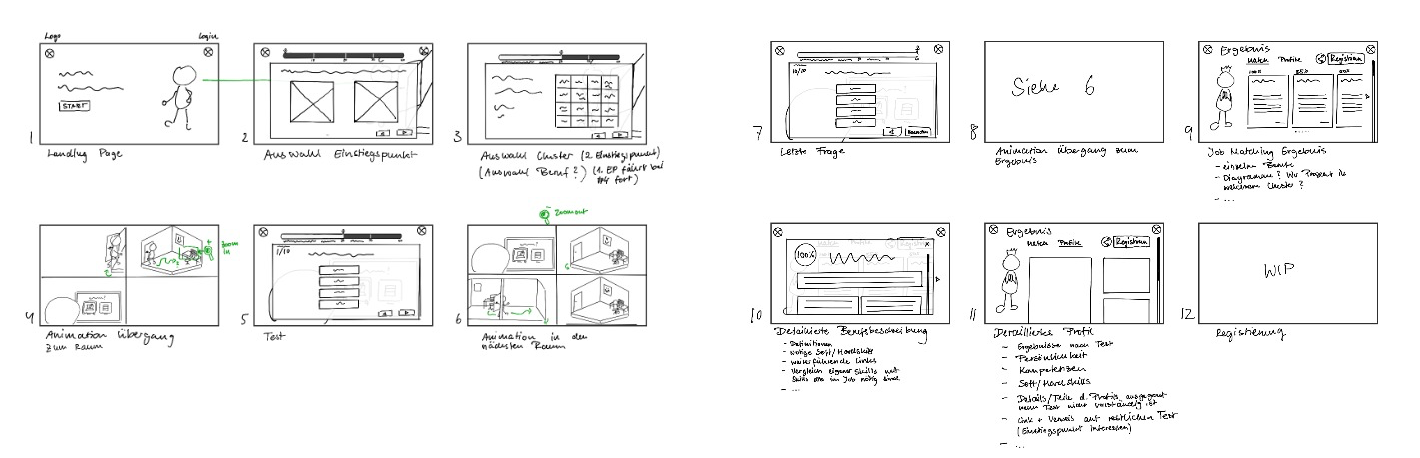 Logo
Login
START
1
Landing Page
2
Auswahl Einstiegspunkt
3
Auswahl Cluster (2. Einstiegspunkt)
(Auswahl Beruf?) (1. EP fährt bei #4 fort)
Zoom in
4
Animation Übergang
zum Raum
1/10
5
Test
Zoom out
6
Animation in den
nächsten Raum
10/10
7
Letzte Frage
Siehe 6
8
Animation Übergang zum
Ergebnis
Ergebnis
Match Profile
Registrieren
100%
9
Job Matching Ergebnis
- einzelne Berufe
- Diagramme? Wv Prozent in
welchem Cluster?
- ...
100%
10
Detaillierte Berufsbeschreibung
- Definitionen
- nötige Soft/Hardskills
- weiterführende Links
- Vergleich eigener Skills mit
Skills die im Job nötig sind
- ...
Ergebnis
Match Profile
Registrieren
11
Detaillierte Profil
- Ergebnisse nach Test
- Persönlichkeit
- Kompetenzen
- Soft/Hardskills
- Details/Teile d. Profils ausgegraut
wenn Test nicht vollständig ist
- Link + Verweis auf restlichen Test
(Einstiegspunkt Interessen)
- ...
WIP
12
Registrierung